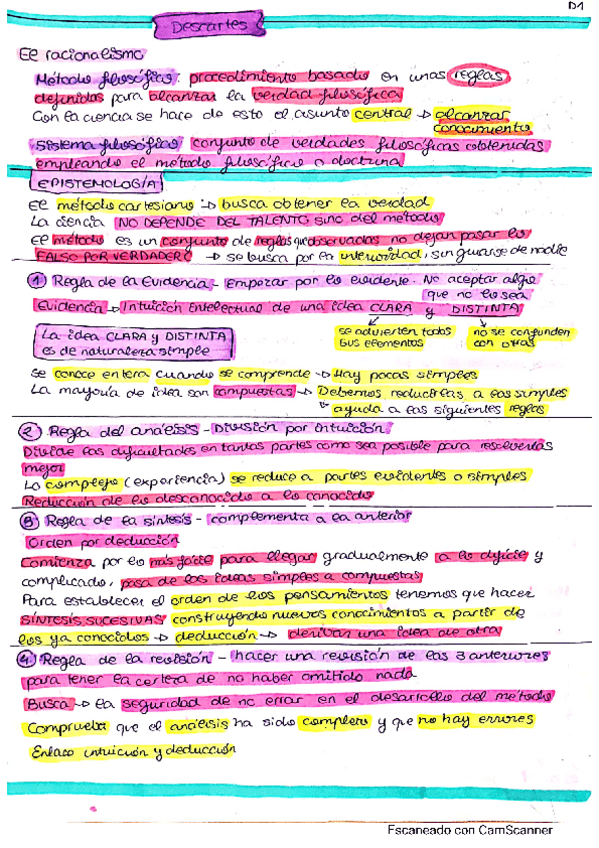 D1
Descartes
El racionalismo
Método filosófico: procedimiento basado en unas reglas
definidas para alcanzar la verdad filosófica
Con la ciencia se hace de esto el asunto central → alcanzar
conocimiento
Sistema filosófico: conjunto de verdades filosóficas obtenidas
empleando el método filosófico o doctrina
EPISTEMOLOGÍA
El método cartesiano → busca obtener la verdad
La ciencia NO DEPENDE DEL TALENTO sino del método
El método es un conjunto de reglas que observadas no dejan pasar lo
FALSO POR VERDADERO → se busca por la interioridad, sin guiarse de nadie
1 Regla de la Evidencia - Empezar por lo evidente. No aceptar algo
que no lo sea
Evidencia → Intuición intelectual de una idea CLARA y DISTINTA
La idea CLARA y DISTINTA
es de naturaleza simple
se advierten todos
sus elementos
no se confunden
con otras
Se conoce entera cuando se comprende → Hay pocas simples
La mayoría de idea son compuestas → Debemos reducirlas a las simples
↳ ayuda a las siguientes reglas
2 Regla del análisis - División por intuición
Divide las dificultades en tantas partes como sea posible para resolverlas
mejor
Lo complejo (experiencia) se reduce a partes evidentes o simples
Reducción de lo desconocido a lo conocido
3 Regla de la síntesis - complementa a la anterior
Orden por deducción
Comienza por lo más fácil para llegar gradualmente a lo difícil y
complicado, pasa de las ideas simples a compuestas
Para establecer el orden de los pensamientos tenemos que hacer
SÍNTESIS SUCESIVAS construyendo nuevos conocimientos a partir de
los ya conocidos → deducción → derivar una idea de otra
4 Regla de la revisión - hacer una revisión de las 3 anteriores
para tener la certeza de no haber omitido nada
Busca → la seguridad de no errar en el desarrollo del método
Comprueba que el análisis ha sido completo y que no hay errores
Enlace intuición y deducción
Escaneado con CamScanner